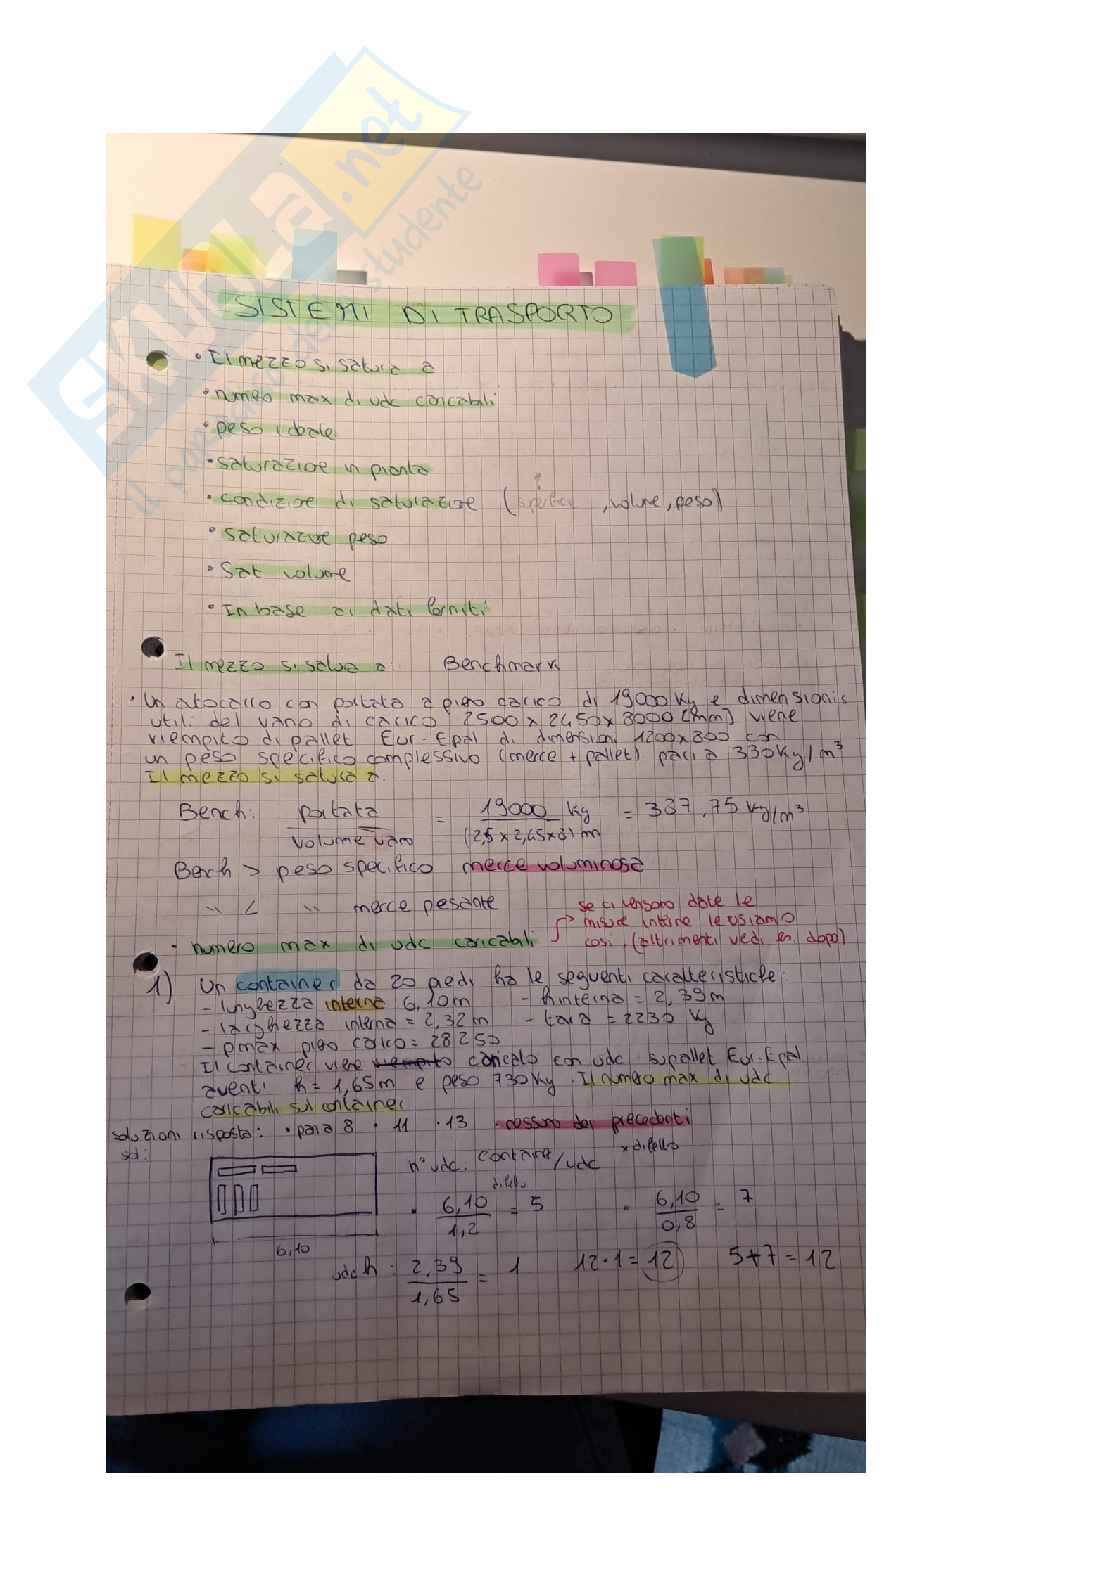 SKUOLA.net
il paradiso dello studente
SISTEMI DI TRASPORTO
• Il mezzo si satura a
• numero max di udc caricabili
• peso ideale
• saturazioe in pianta
• condizioe di saturazioe ( , volume, peso)
?
• saturazioe peso
• Sat volume
• In base ai dati forniti
Il mezzo si satura a Benchmark
• Un autocarro con portata a pieno carico di 19000 Kg e dimensioni
utili del vano di carico 2500 x 2450 x 3000 [mm] viene
riempito di pallet Eur-Epal di dimensioni 1200x800 con
un peso specifico complessivo (merce + pallet) pari a 330 Kg/m³
Il mezzo si satura a:
Bench: portata / volume vano = 19000 kg / (2,5 x 2,45 x 8) m = 387,75 kg/m³
Bench > peso specifico merce voluminosa
" < " merce pesante
se ci vengono date le
misure interne le usiamo
così, (altrimenti vedi es dopo)
- numero max di udc caricabili
1) Un container da 20 piedi ha le seguenti caratteristiche:
- lunghezza interna 6,10m - h interna = 2,39m
- larghezza interna = 2,32 m - tara = 2230 kg
- pmax pieno carico = 28250
Il container viene caricato con udc su pallet Eur-Epal
aventi h = 1,65m e peso 730Kg. Il numero max di udc
caricabili sul container
soluzioni risposta: • pari a 8 • 11 • 13 • nessuno dei precedenti
sol:
n° udc: container/udc x difetto
difetto
• 6,10 / 1,2 = 5 • 6,10 / 0,8 = 7
6,10
udc h: 2,39 / 1,65 = 1 12 • 1 = 12 5+7 = 12